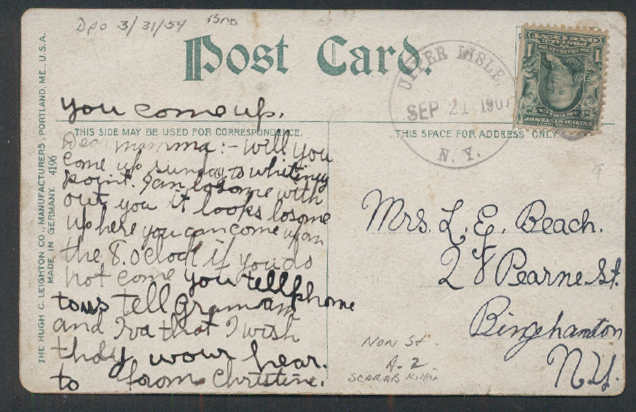 DPO 3/31/54
Post Card.
UPPER LISLE,
SEP 21 1907
N. Y.
1
THE HUGH C. LEIGHTON CO., MANUFACTURERS, PORTLAND, ME., U.S.A.
MADE IN GERMANY. 4196
you come up.
THIS SIDE MAY BE USED FOR CORRESPONDENCE.
Dear mamma:- will you
come up sunday to whitney
point. I am losome with
out you it looks losome
up here you can come up on
the 8. o'clock if you do
not come you tellphone
to us tell gramam
and Iva that I wish
thdy wour hear.
to from Christene.
THIS SPACE FOR ADDRESS ONLY
Mrs. L. E. Beach.
28 Pearne St.
Binghamton
N.Y.
NON St.
A-2
SCARAB Killer